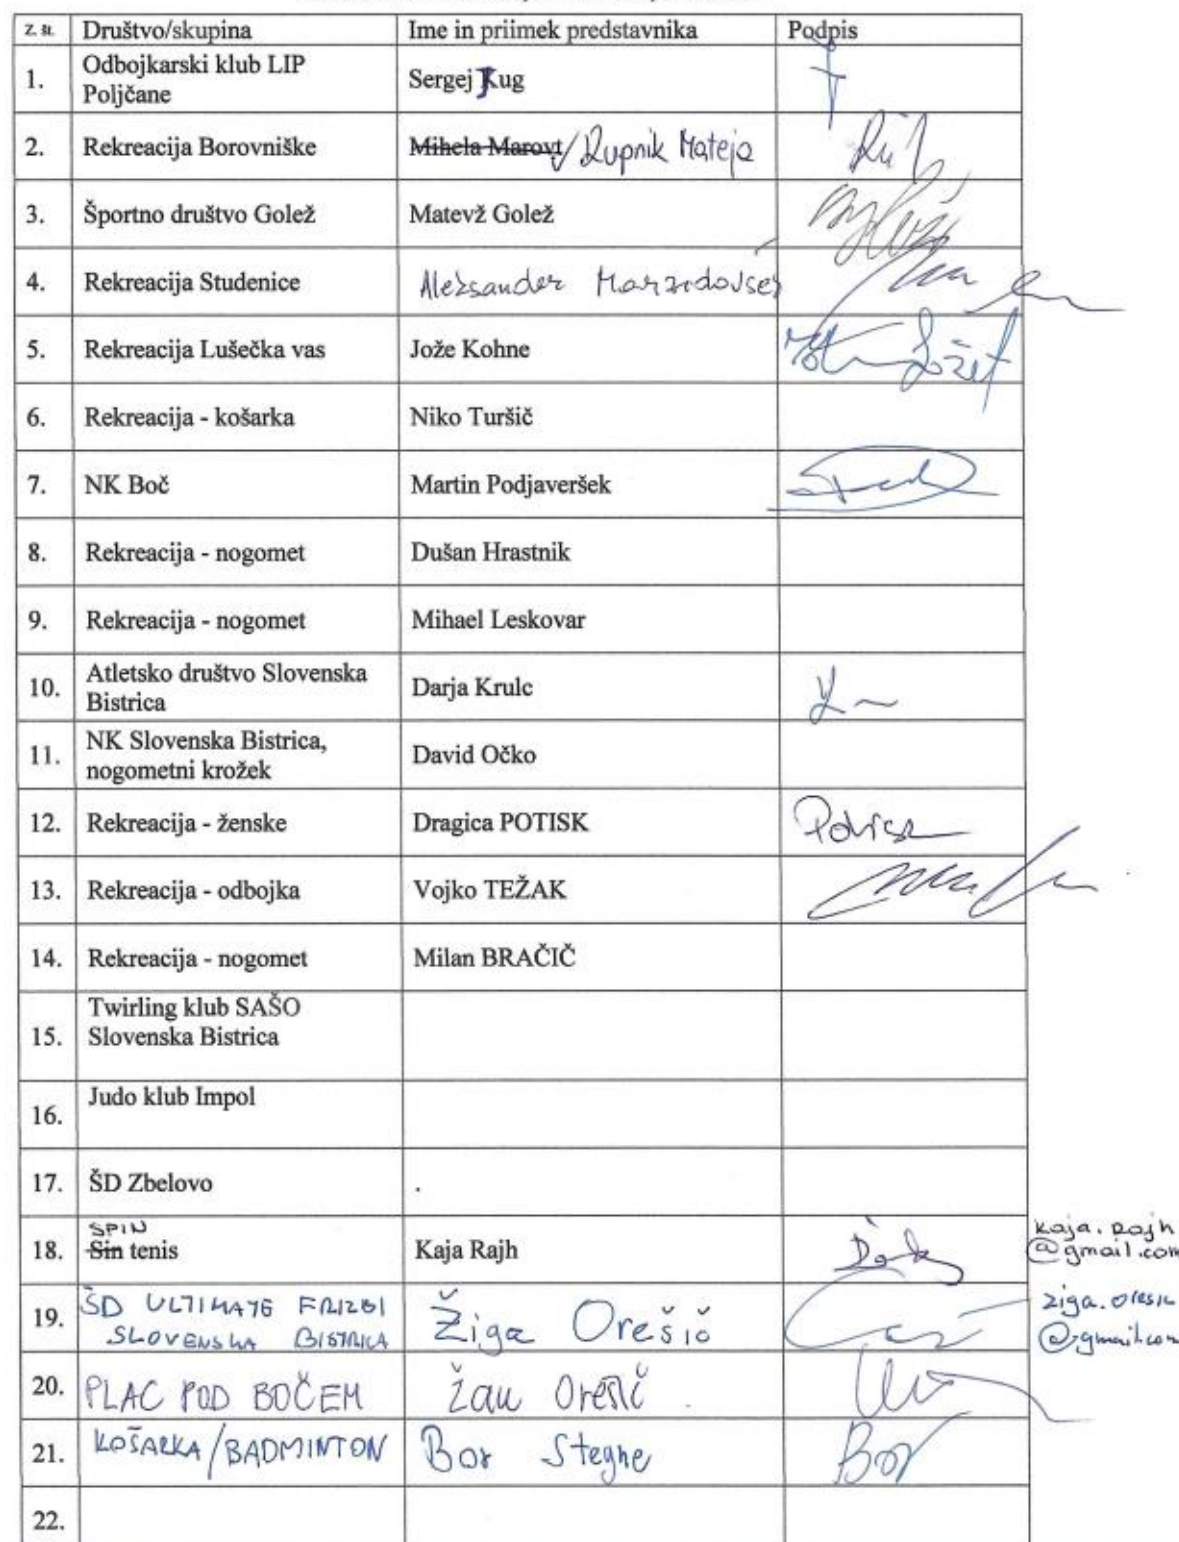 Z. št. Društvo/skupina Ime in priimek predstavnika Podpis
1. Odbojkarski klub LIP
Poljčane Sergej Kug
2. Rekreacija Borovniške Mihela Marovt / Rupnik Mateja
3. Športno društvo Golež Matevž Golež
4. Rekreacija Studenice Aleksander
5. Rekreacija Lušečka vas Jože Kohne
6. Rekreacija - košarka Niko Turšič
7. NK Boč Martin Podjaveršek
8. Rekreacija - nogomet Dušan Hrastnik
9. Rekreacija - nogomet Mihael Leskovar
10. Atletsko društvo Slovenska
Bistrica Darja Krulc
11. NK Slovenska Bistrica,
nogometni krožek David Očko
12. Rekreacija - ženske Dragica POTISK
13. Rekreacija - odbojka Vojko TEŽAK
14. Rekreacija - nogomet Milan BRAČIČ
15. Twirling klub SAŠO
Slovenska Bistrica
16. Judo klub Impol
17. ŠD Zbelovo
SPIN
18. Sin tenis Kaja Rajh kaja.rajh
@gmail.com
19. ŠD ULTIMATE FRIZBI
SLOVENSKA BISTRICA Žiga Orešič ziga.oresic
@gmail.com
20. PLAC POD BOČEM Žan Orešič
21. KOŠARKA/BADMINTON Bor Stegne Bor
22.